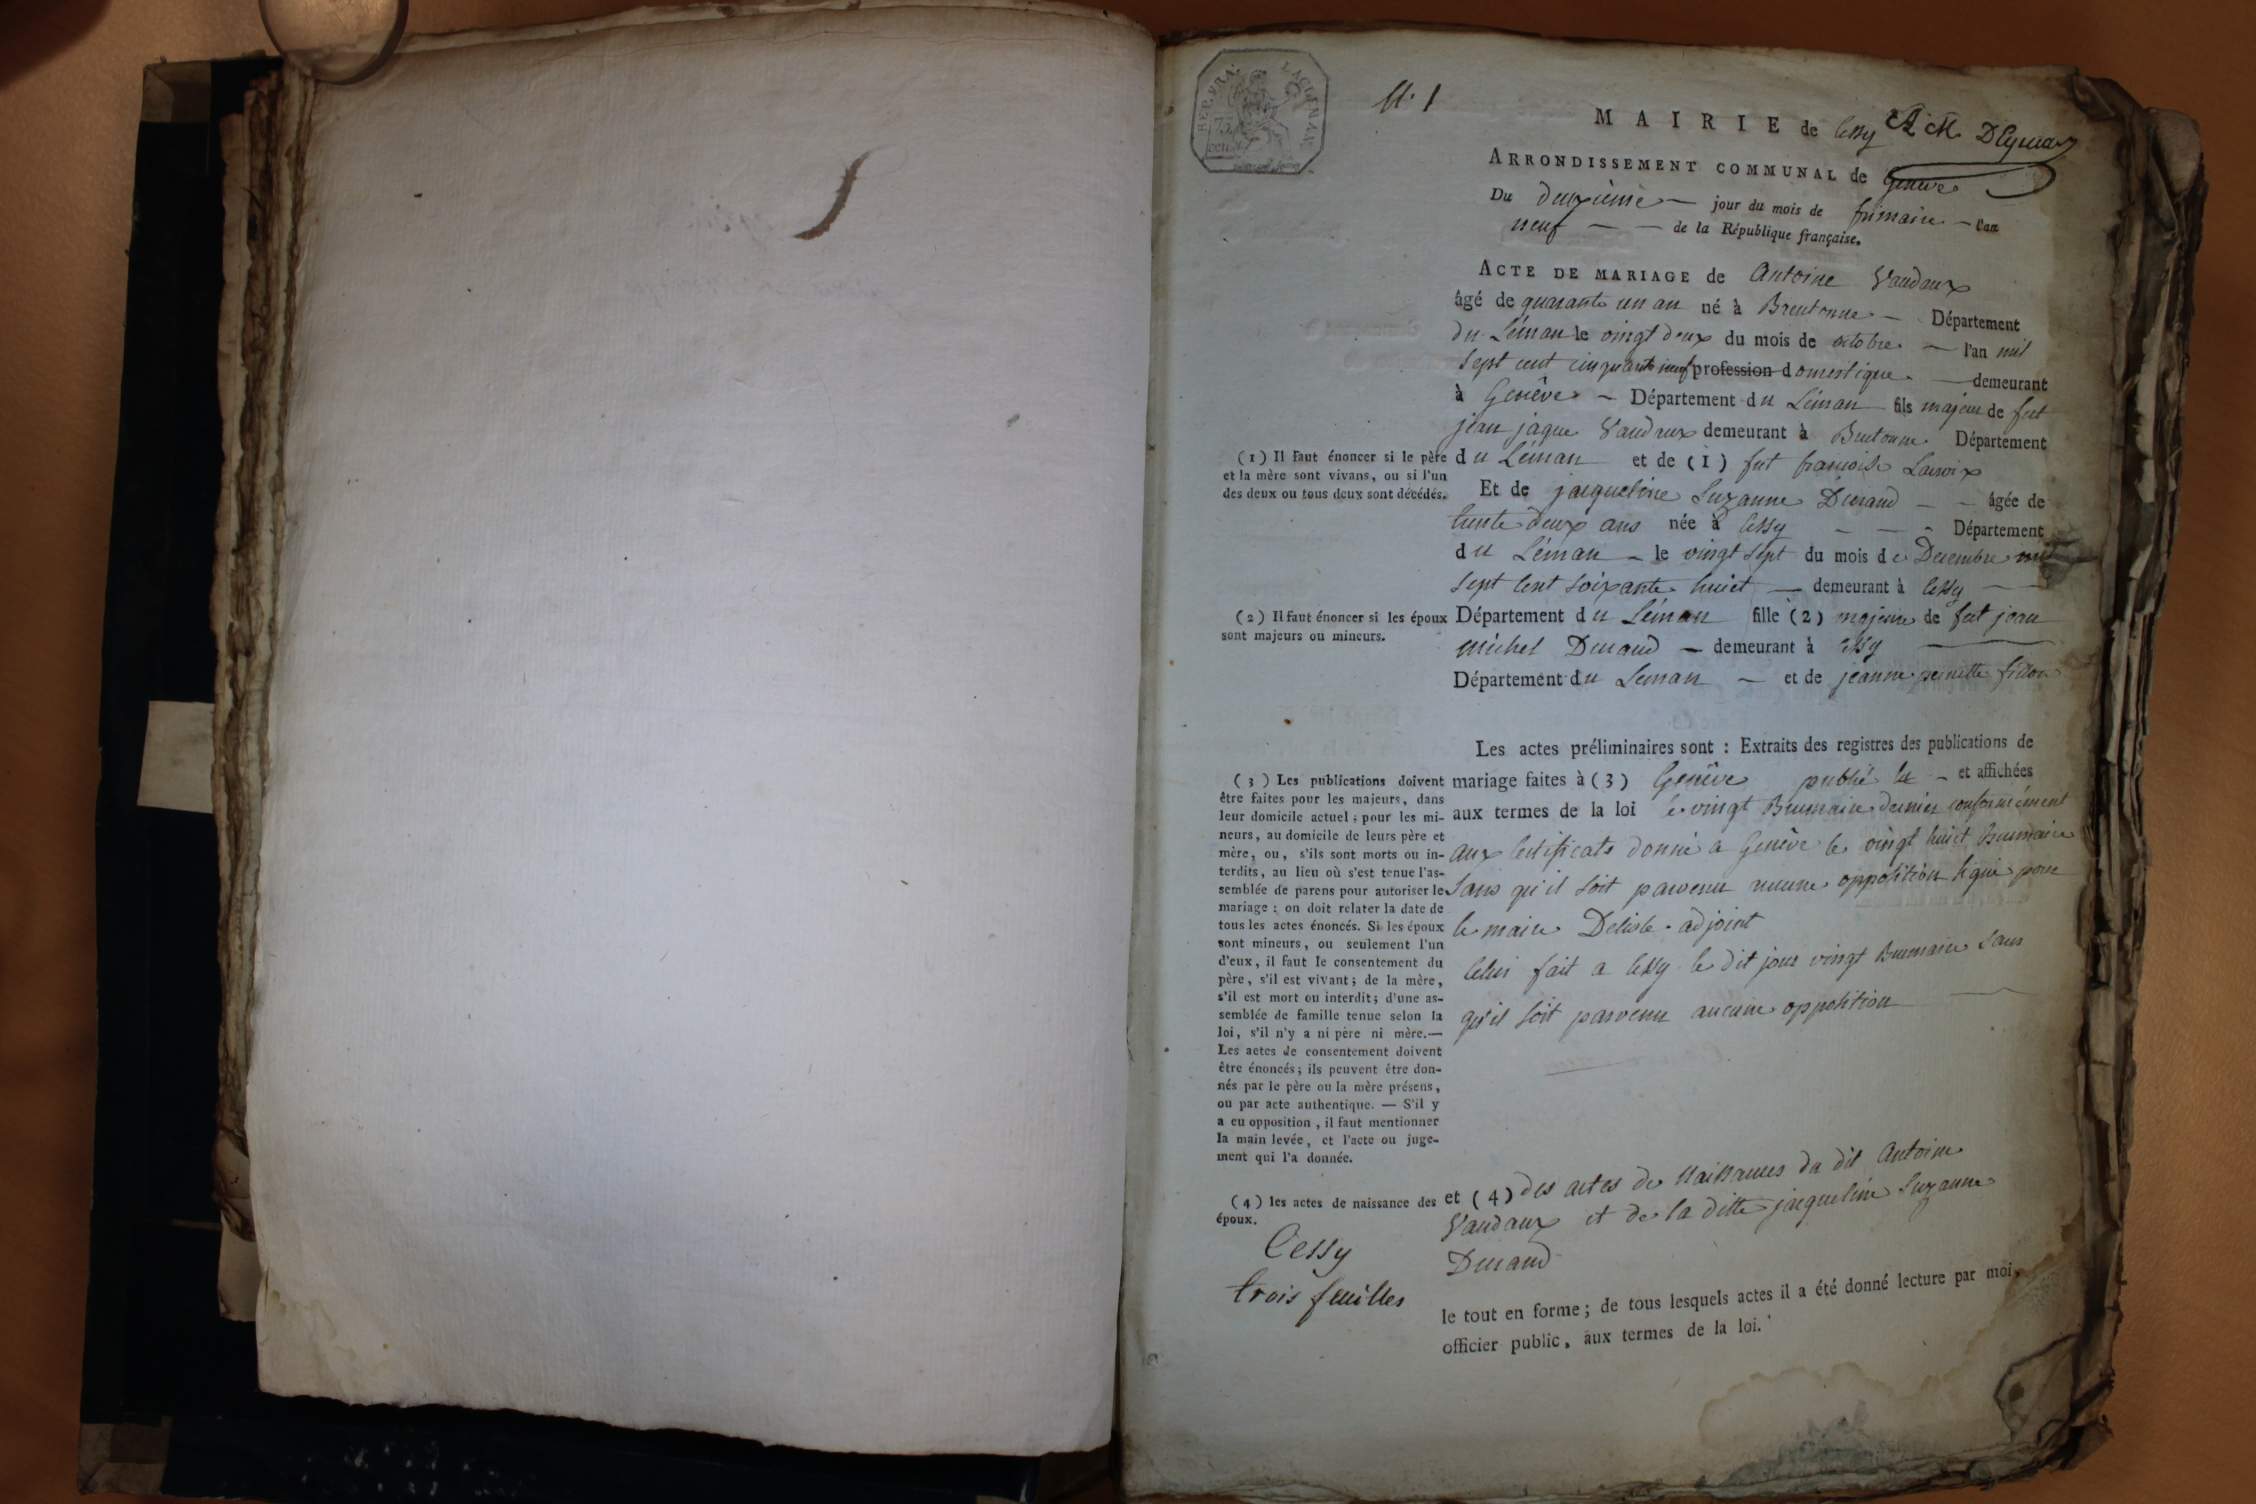 REP. FRA.
75
CEN.
N.° 1
MAIRIE de Cessy
ARRONDISSEMENT COMMUNAL de Genève
Du deuxième — jour du mois de frimaire — l'an
neuf — — de la République française.
ACTE DE MARIAGE de Antoine Vaudaux
âgé de quarante un an né à Bretonne — Département
du Léman le vingt deux du mois de octobre — l'an mil
sept cent cinquante neuf profession domestique — demeurant
à Genève — Département du Léman fils majeur de feu
jean jaque Vaudaux demeurant à Bretonne Département
du Léman et de (1) fut francoise Lacroix
Et de jacqueline Suzanne Durand — — âgée de
trente deux ans née à Cessy — — — Département
du Léman — le vingt sept du mois de Decembre mil
sept cent soixante huict — demeurant à Cessy — —
Département du Léman fille (2) majeure de feu jean
michel Durand — demeurant à Cessy
Département du Leman — et de jeanne pernette fillon
Les actes préliminaires sont : Extraits des registres des publications de
mariage faites à (3) Genève publié le — et affichées
aux termes de la loi le vingt Brumaire dernier conformément
aux Certificats donné a Genève le vingt huict Brumaire
sans qu'il soit parvenu aucune opposition signé pour
le maire Delisle adjoint
Celui fait a Cessy le dit jour vingt Brumaire sans
qu'il soit parvenu aucune opposition
et (4) des actes de Naissances du dit Antoine
Vaudaux et de la ditte jacqueline Suzanne
Durand
le tout en forme ; de tous lesquels actes il a été donné lecture par moi,
officier public, aux termes de la loi.
(1) Il faut énoncer si le père
et la mère sont vivans, ou si l'un
des deux ou tous deux sont décédés.
(2) Il faut énoncer si les époux
sont majeurs ou mineurs.
(3) Les publications doivent
être faites pour les majeurs, dans
leur domicile actuel ; pour les mi-
neurs, au domicile de leurs père et
mère, ou, s'ils sont morts ou in-
terdits, au lieu où s'est tenue l'as-
semblée de parens pour autoriser le
mariage : on doit relater la date de
tous les actes énoncés. Si les époux
sont mineurs, ou seulement l'un
d'eux, il faut le consentement du
père, s'il est vivant ; de la mère,
s'il est mort ou interdit ; d'une as-
semblée de famille tenue selon la
loi, s'il n'y a ni père ni mère.—
Les actes de consentement doivent
être énoncés ; ils peuvent être don-
nés par le père ou la mère présens,
ou par acte authentique. — S'il y
a eu opposition, il faut mentionner
la main levée, et l'acte ou juge-
ment qui l'a donnée.
(4) les actes de naissance des
époux.
Cessy
trois feuilles